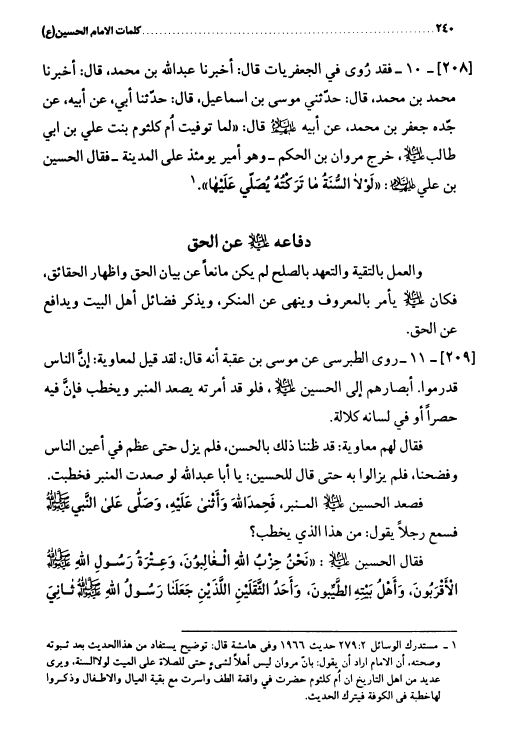 ٢٤٠ ........................................................ كلمات الامام الحسين(ع)
[٢٠٨] ـ ١٠ ـ فقد رُوى في الجعفريات قال: أخبرنا عبدالله بن محمد، قال: أخبرنا
محمد بن محمد، قال: حدّثني موسى بن اسماعيل، قال: حدّثنا أبي، عن أبيه، عن
جّده جعفر بن محمد، عن أبيه عليهم السلام قال: «لما توفيت أُم كلثوم بنت علي بن ابي
طالب عليه السلام، خرج مروان بن الحكم ـ وهو أمير يومئذ على المدينة ـ فقال الحسين
بن علي عليهما السلام: «لَوْلاَ السُّنَةُ مَا تَرَكْتُهُ يُصَلّي عَلَيْهَا».١
دفاعه عليه السلام عن الحق
والعمل بالتقية والتعهد بالصلح لم يكن مانعاً عن بيان الحق واظهار الحقائق،
فكان عليه السلام يأمر بالمعروف وينهى عن المنكر، ويذكر فضائل أهل البيت ويدافع
عن الحق.
[٢٠٩] ـ ١١ ـ روى الطبرسى عن موسى بن عقبة أنه قال: لقد قيل لمعاوية: إنَّ الناس
قدرموا. أبصارهم إلى الحسين عليه السلام، فلو قد أمرته يصعد المنبر ويخطب فإنَّ فيه
حصراً أو في لسانه كلالة.
فقال لهم معاوية: قد ظننا ذلك بالحسن، فلم يزل حتى عظم في أعين الناس
وفضحنا، فلم يزالوا به حتى قال للحسين: يا أبا عبدالله لو صعدت المنبر فخطبت.
فصعد الحسين عليه السلام المنبر، فَحِمدَاللهَ وَأَثْنىٰ عَلَيْهِ، وَصَلَّى عَلىَ النَّبي صلى الله عليه وآله وسلم
فسمع رجلاً يقول: من هذا الذي يخطب؟
فقال الحسين عليه السلام : «نَحْنُ حِزْبُ اللهِ الْغالِبُونَ، وَعِتْرَةُ رَسُولِ اللهِ صلى الله عليه وآله وسلم
الْأَقْرَبُونَ، وَأَهْلُ بَيْتِهِ الطَّيِبُونَ، وَأَحَدُ الثَّقَلَيْنِ اللَّذَيْنِ جَعَلَنَا رَسُولُ اللهِ صلى الله عليه وآله وسلم ثَانِيَ
١ ـ مستدرك الوسائل ٢٧٩:٢ حديث ١٩٦٦ وفى هامشة قال: توضيح يستفاد من هذاالحديث بعد ثبوته
وصحته، أن الامام اراد أن يقول: بانّ مروان ليس أهلاً لشىءٍ حتى للصلاة على الميت لولاالسنة، ويرى
عديد من اهل التاريخ ان أُم كلثوم حضرت في واقعة الطف واسرت مع بقية العيال والاطفال وذكـروا
لهاخطبة فى الكوفة فيترك الحديث.